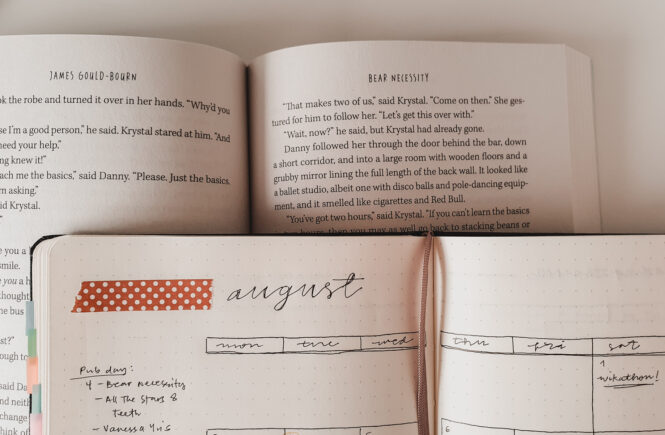 JAMES GOULD-BOURN
ok the robe and turned it over in her hands. "Why'd you
se I'm a good person," he said. Krystal stared at him. "And
need your help."
ng knew it!"
ach me the basics," said Danny. "Please. Just the basics.
m asking."
id Krystal.
"
e you a l
smile.
e you a h
thought
the bus
st?"
ough to
said Da
neithe
change
hink of
BEAR NECESSITY
"That makes two of us," said Krystal. "Come on then." She ges-
tured for him to follow her. "Let's get this over with."
"Wait, now?" he said, but Krystal had already gone.
Danny followed her through the door behind the bar, down
a short corridor, and into a large room with wooden floors and a
grubby mirror lining the full length of the back wall. It looked like
a ballet studio, albeit one with disco balls and pole-dancing equip-
ment, and it smelled like cigarettes and Red Bull.
"You've got two hours," said Krystal. "If you can't learn the basics
hours, then you may as well go back to stacking beans or
august
mon tue wed thu fri sat
1
wikathon!
Pub day:
4 - Bear Necessity
- All The Stars &
Teeth
- Vanessa Yu's
6